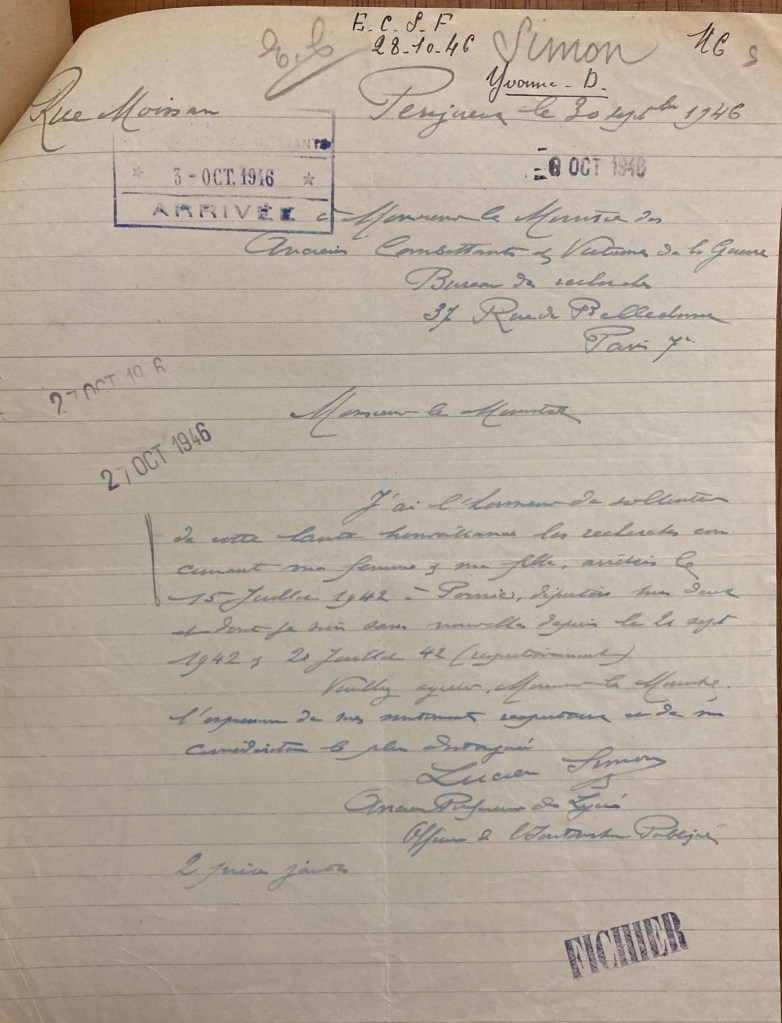 E. C. S. F
28-10-46
Simon
Yvonne. D.
Rue Moissan
Perigueux le 30 septbre 1946
3 - OCT. 1946
ARRIVÉE
8 OCT 1946
à Monsieur le Ministre des
Anciens Combattants & Victimes de la Guerre
Bureau des recherches
37 Rue de Bellechasse
Paris 7e
27 OCT 1946
27 OCT 1946
Monsieur le Ministre
J'ai l'honneur de solliciter
de votre haute bienveillance les recherches con
cernant ma femme & ma fille, arrêtées le
15 Juillet 1942 à Pornic, déportées tous deux
et dont je suis sans nouvelles depuis le 21 sept
1942 & 20 Juillet 42 (respectivement)
Veuillez agréer, Monsieur le Ministre,
l'expression de mes sentiments respectueux et de ma
considération la plus distinguée
Lucien Simon
Ancien Professeur de Lycée
Officier de l'Instruction Publique
2 pièces jointes
FICHIER